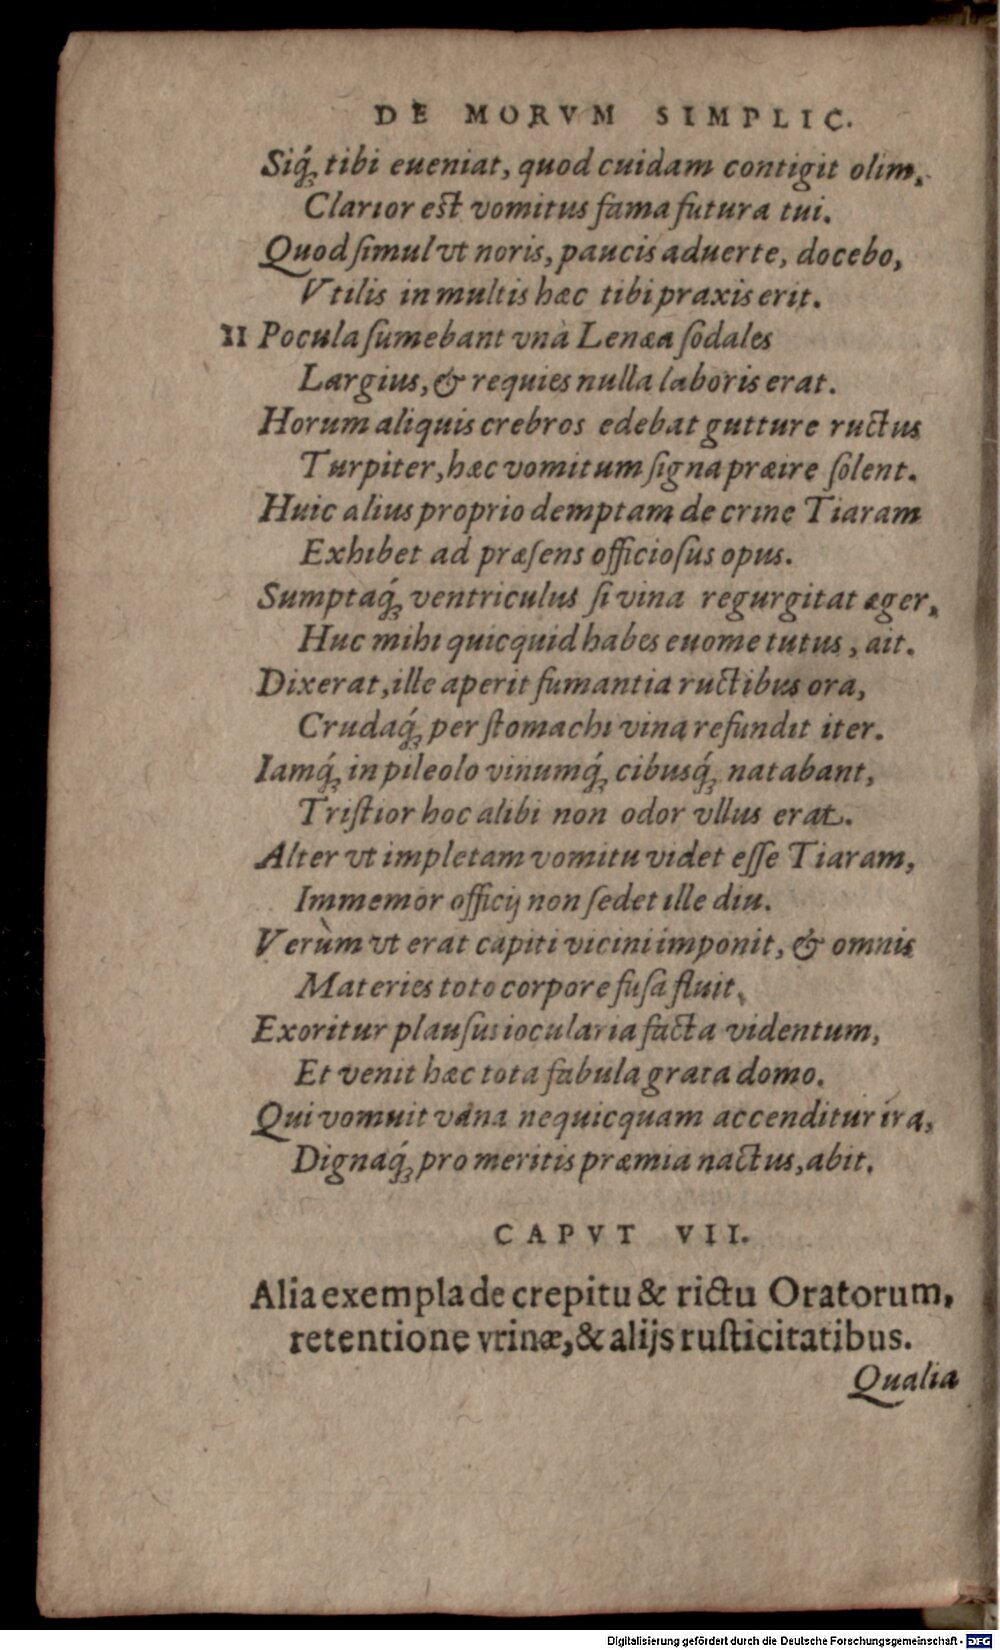 DE MORVM SIMPLIC.
Siq́ꝫ tibi eueniat, quod cuidam contigit olim,
Clarior est vomitus fama futura tui.
Quod ſimul vt noris, paucis aduerte, docebo,
Vtilis in multis hæc tibi praxis erit.
II Pocula ſumebant vnà Lenæa ſodales
Largius, & requies nulla laboris erat.
Horum aliquis crebros edebat gutture ructus
Turpiter, hæc vomitum ſigna præire ſolent.
Huic alius proprio demptam de crine Tiaram
Exhibet ad præſens officioſus opus.
Sumptaq́ꝫ ventriculus ſi vina regurgitat æger,
Huc mihi quicquid habes euome tutus, ait.
Dixerat, ille aperit fumantia ructibus ora,
Crudaq́ꝫ per ſtomachi vina refundit iter.
Iamq́ꝫ in pileolo vinumq́ꝫ cibusq́ꝫ natabant,
Triſtior hoc alibi non odor vllus erat.
Alter vt impletam vomitu videt eſſe Tiaram,
Immemor officij non ſedet ille diu.
Verùm vt erat capiti vicini imponit, & omnis
Materies toto corpore fuſa fluit.
Exoritur plauſus iocularia facta videntum,
Et venit hæc tota fabula grata domo.
Qui vomuit vana nequicquam accenditur ira,
Dignaq́ꝫ pro meritis præmia nactus, abit.
CAPVT VII.
Alia exempla de crepitu & rictu Oratorum,
retentione vrinæ, & alijs ruſticitatibus.
Qualia
Digitalisierung gefördert durch die Deutsche Forschungsgemeinschaft - DFG